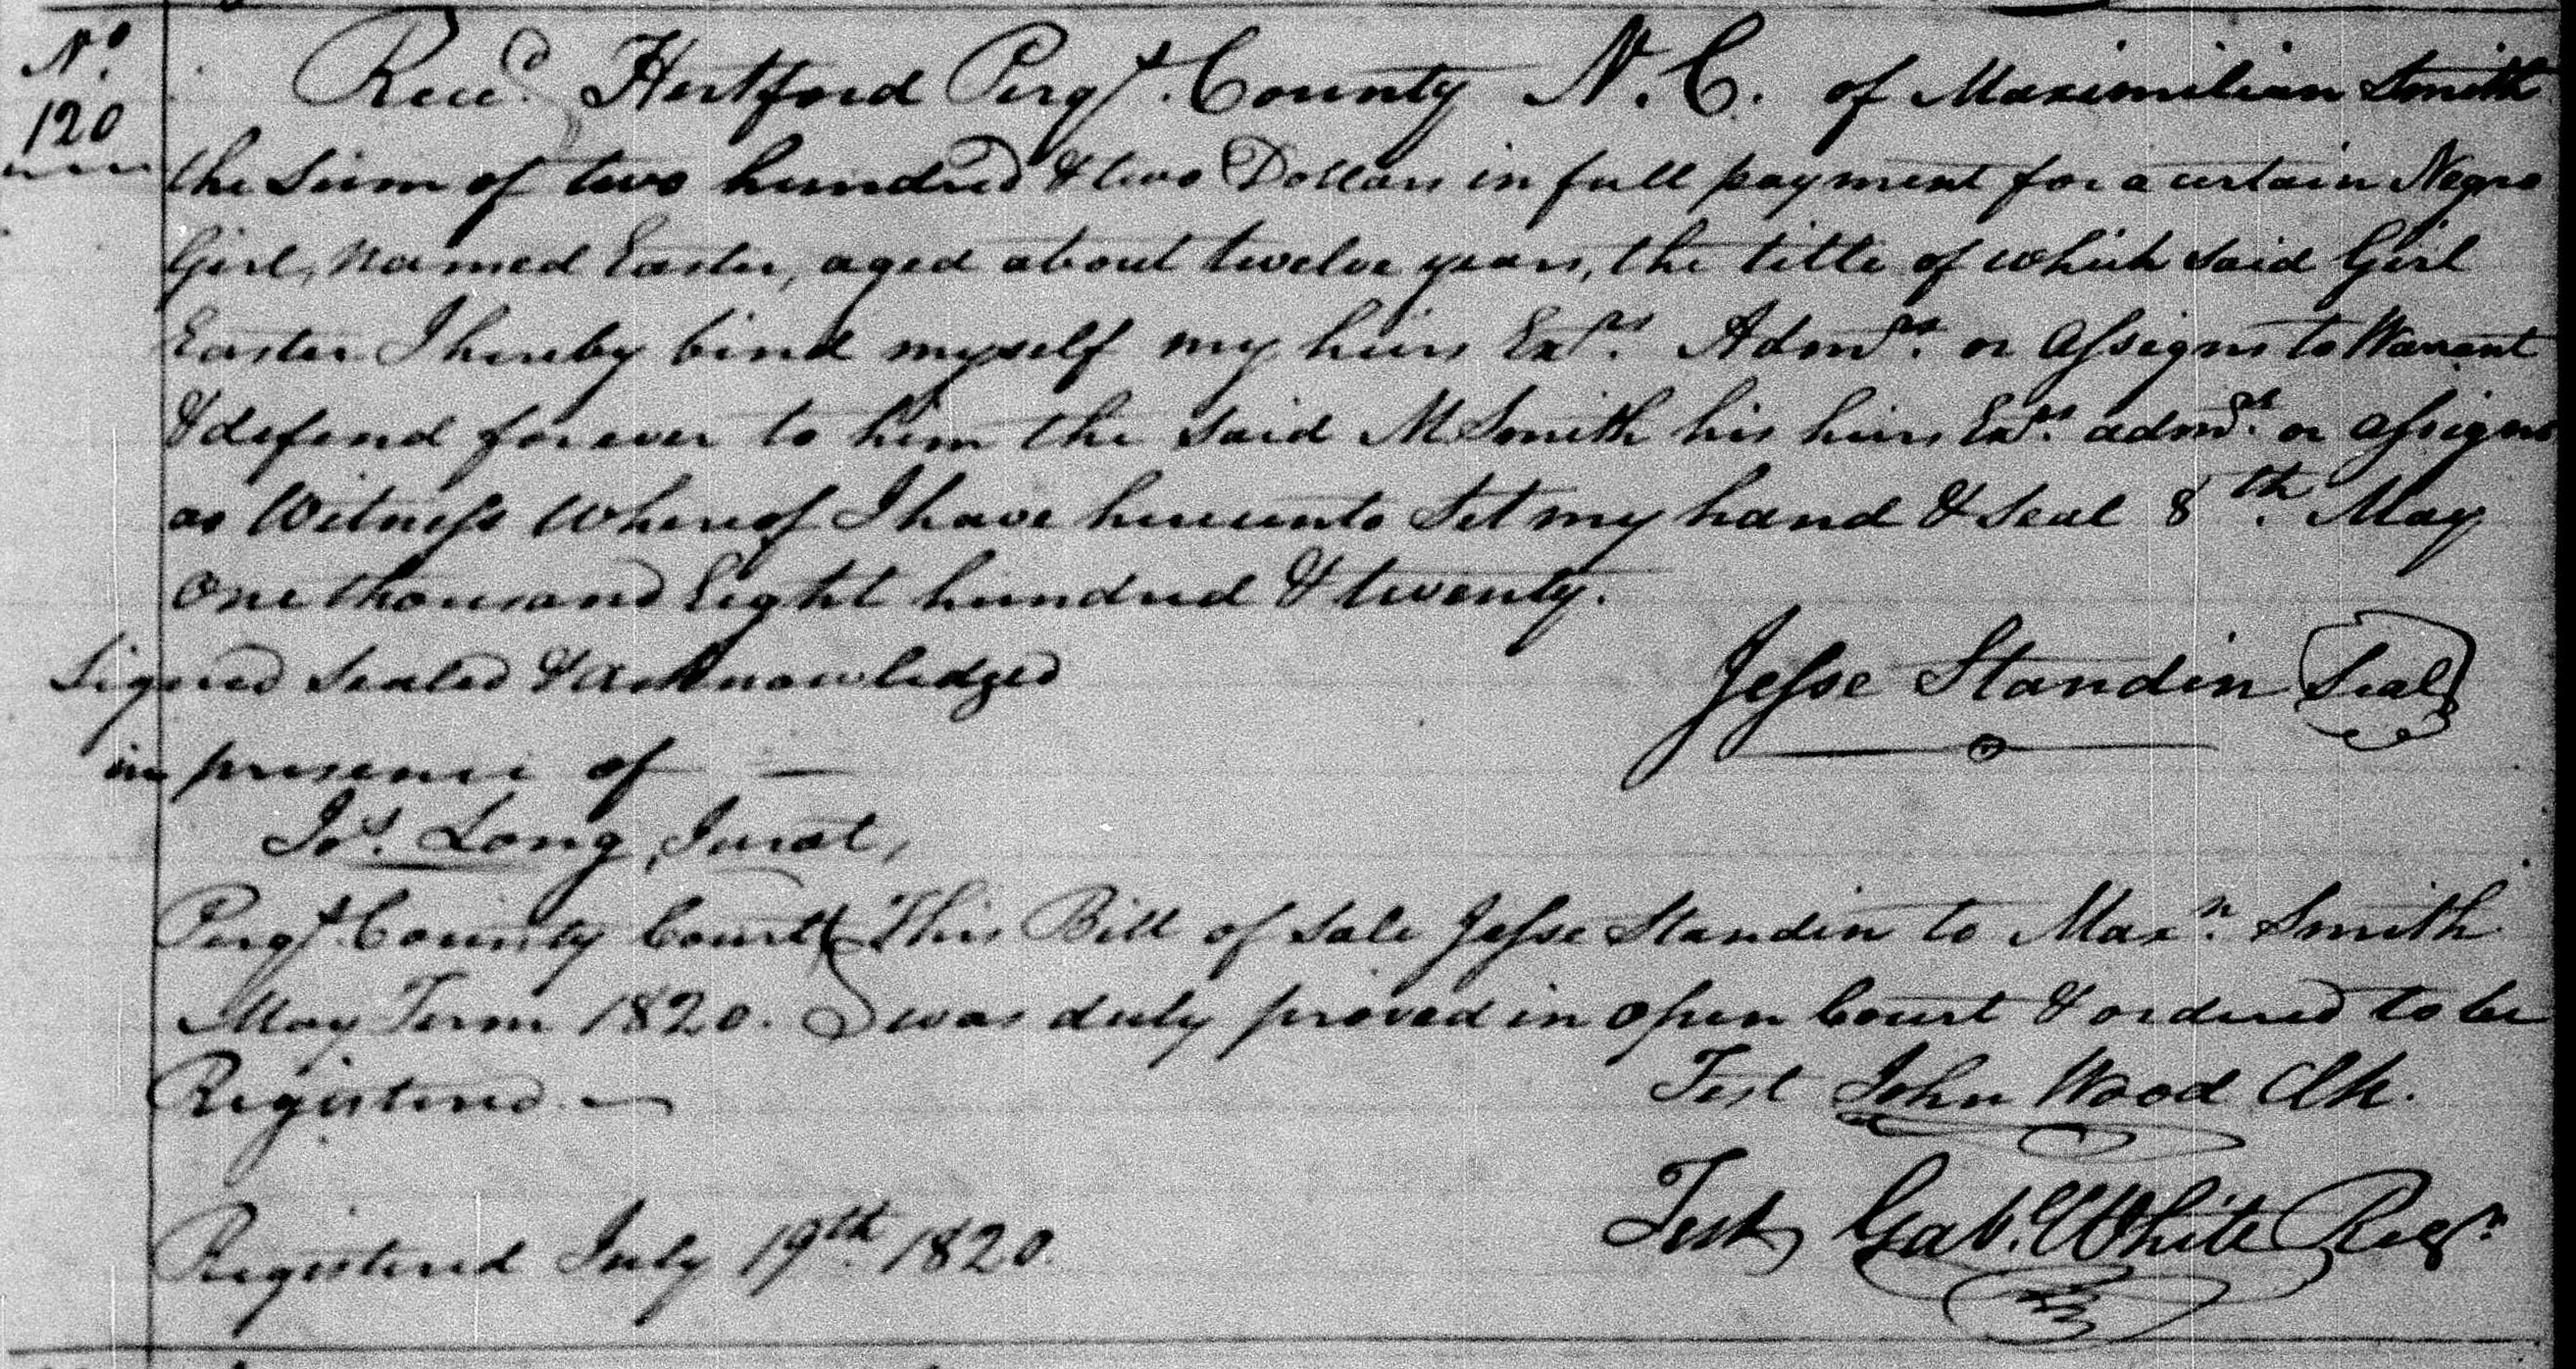 No
120
Recd. Hertford Perqs. County N. C. of Maximilian Smith
the Sum of two hundred & two Dollars in full payment for a certain Negro
Girl, Named Easter, aged about twelve years, the title of which said Girl
Easter I hereby bind myself my heirs Exrs. Admrs. or assigns to Warrant
& defend forever to him the said M Smith his heirs Exrs. admrs. or assigns
as Witness Whereof I have hereunto Set my hand & Seal 8th. May
One thousand Eight hundred & twenty.
Signed Sealed & acknowledged
Jesse Standin Seal
in presence of
Jos. Long, Jurat,
Perqs. County Court This Bill of Sale Jesse Standin to Maxn. Smith
May Term 1820. was duly proved in Open Court & ordered to be
Registered.
Test John Wood Clk.
Registered July 19th. 1820.
Test, Gabl. White Regr.